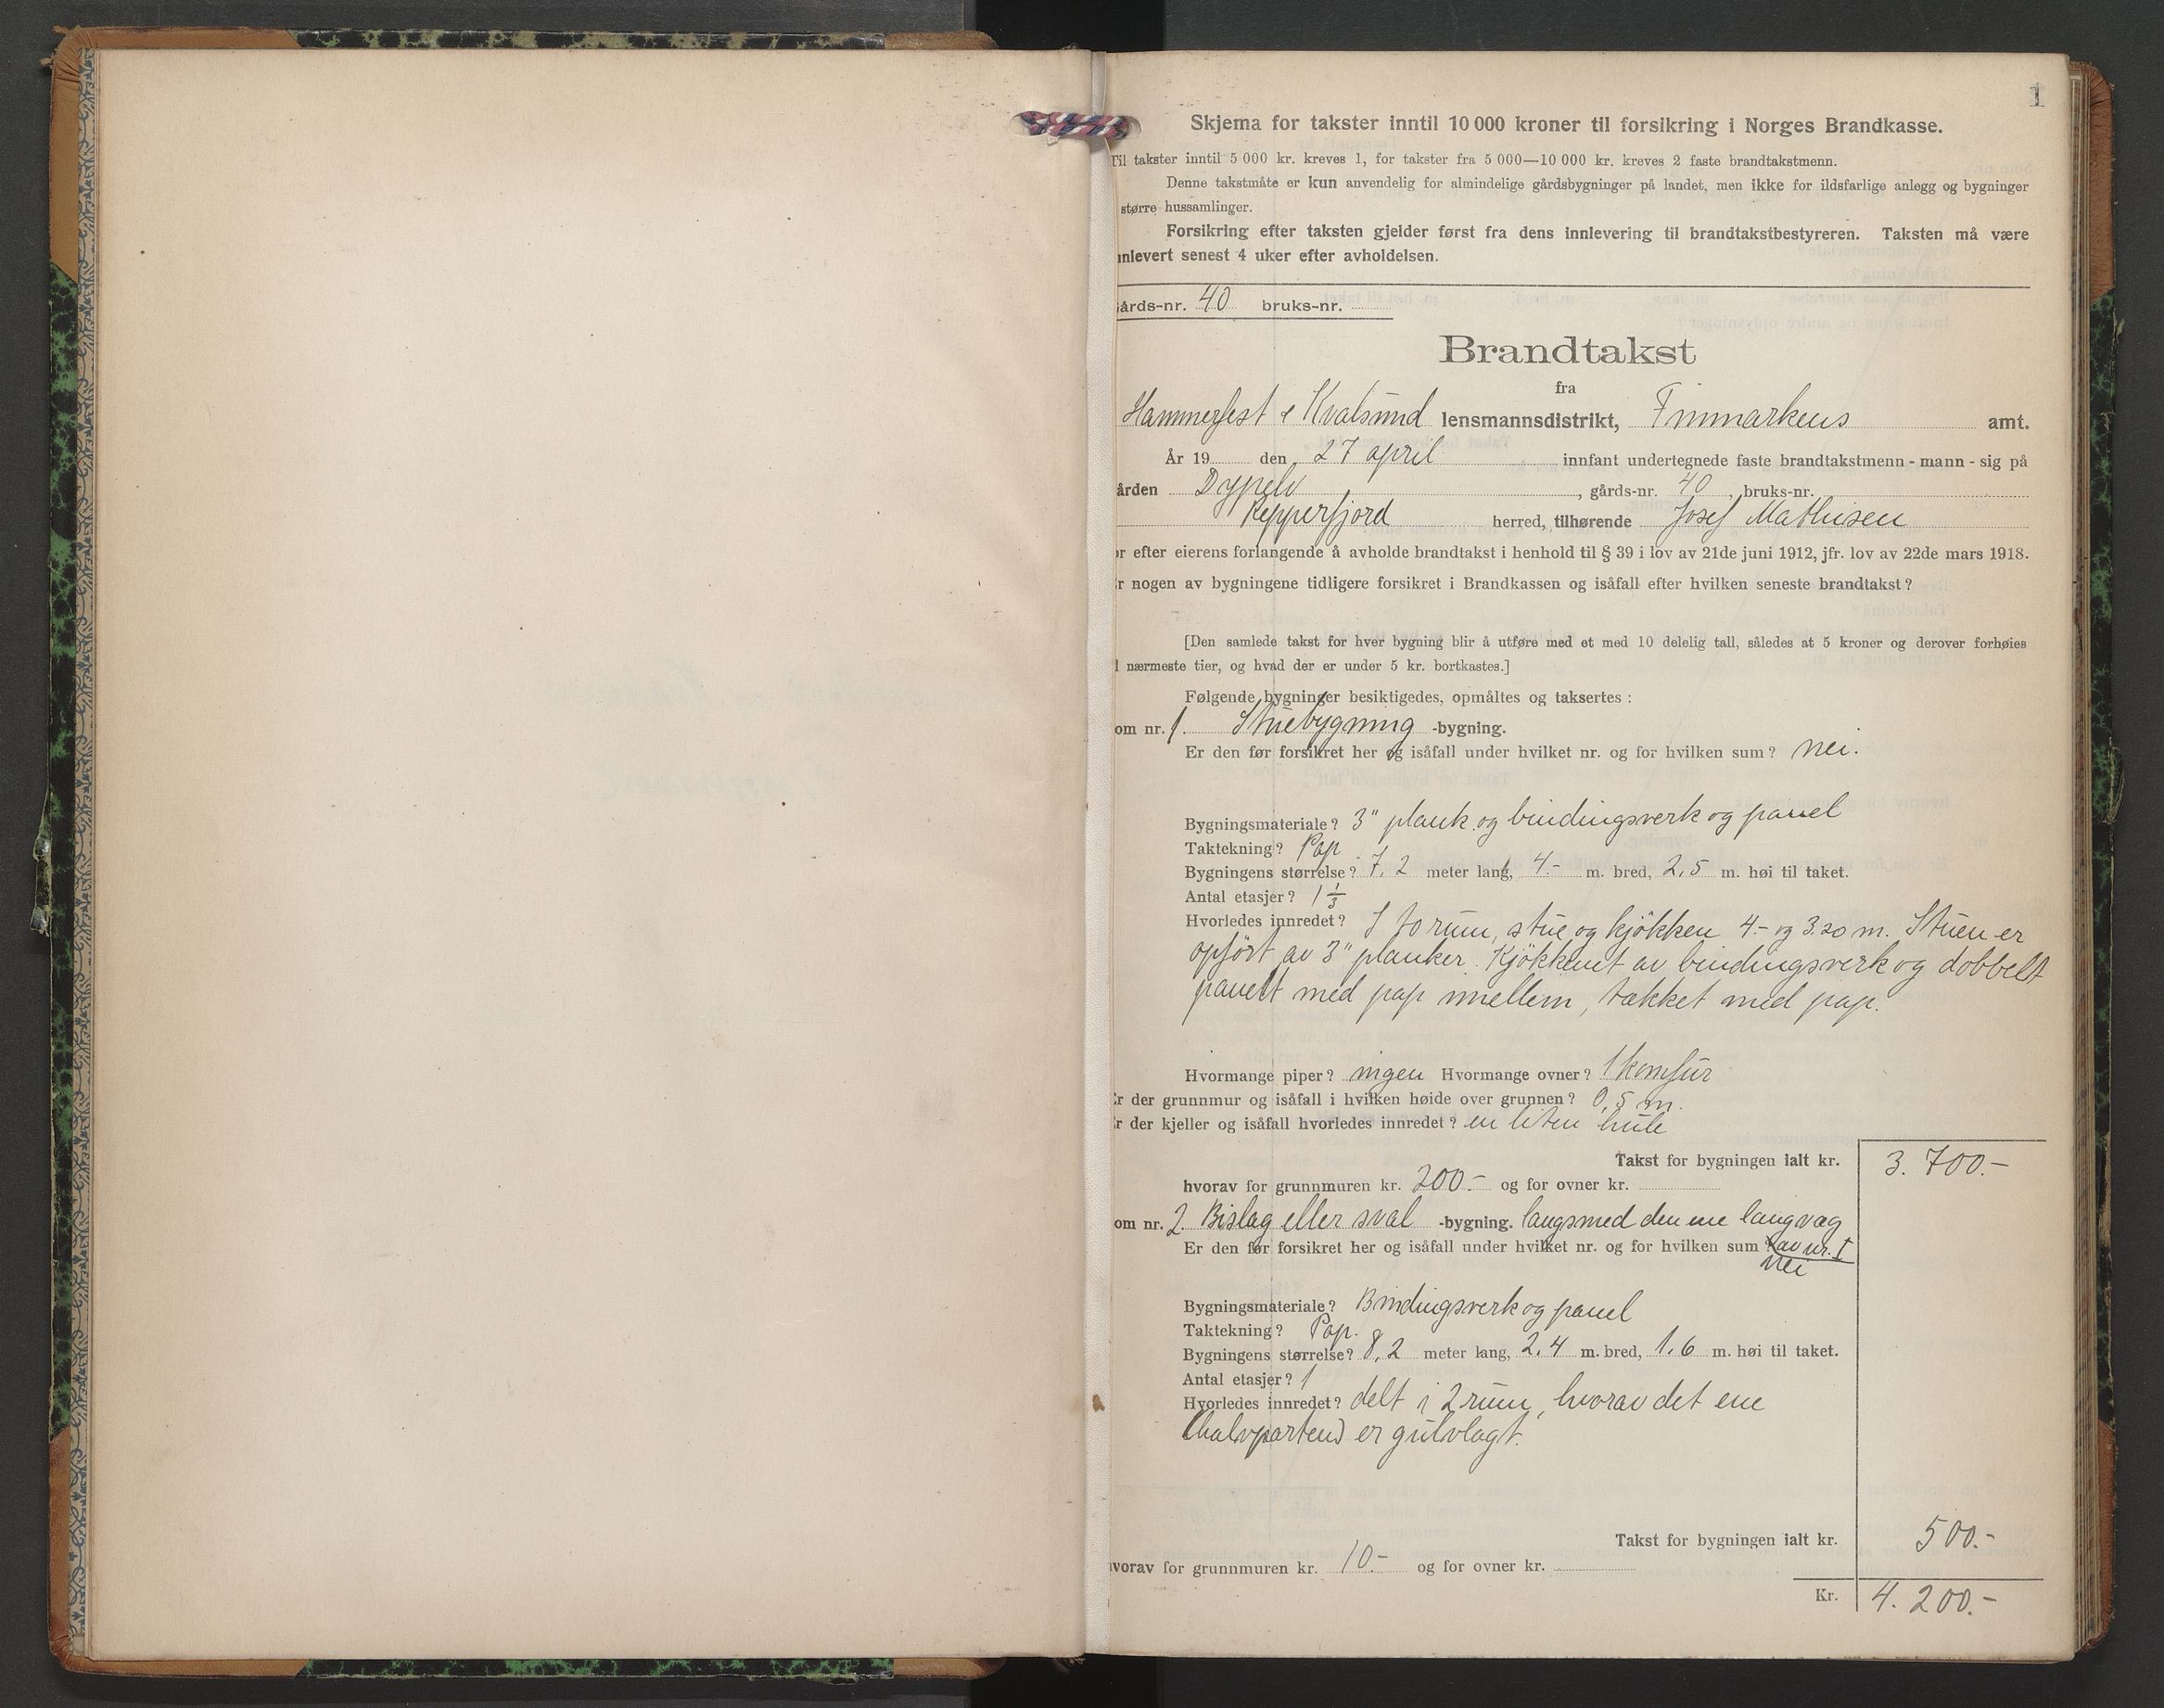 1
Skjema for takster inntil 10 000 kroner til forsikring i Norges Brandkasse.
Til takster inntil 5 000 kr. kreves 1, for takster fra 5 000—10 000 kr. kreves 2 faste brandtakstmenn.
Denne takstmåte er kun anvendelig for almindelige gårdsbygninger på landet, men ikke for ildsfarlige anlegg og bygninger
større hussamlinger.
Forsikring efter taksten gjelder først fra dens innlevering til brandtakstbestyreren. Taksten må være
nnlevert senest 4 uker efter avholdelsen.
årds-nr. 40 bruks-nr.
Brandtakst
fra
Hammerfest & Kvalsund lensmannsdistrikt, Finmarkens amt.
År 19 den 27 april innfant undertegnede faste brandtakstmenn - mann - sig på
ården Dypelv, gårds-nr. 40, bruks-nr.
Repperfjord herred, tilhørende Josef Mathisen
or efter eierens forlangende å avholde brandtakst i henhold til § 39 i lov av 21de juni 1912, jfr. lov av 22de mars 1918.
r nogen av bygningene tidligere forsikret i Brandkassen og isåfall efter hvilken seneste brandtakst?
[Den samlede takst for hver bygning blir å utføre med et med 10 delelig tall, således at 5 kroner og derover forhøies
l nærmeste tier, og hvad der er under 5 kr. bortkastes.]
Følgende bygninger besiktigedes, opmåltes og taksertes :
om nr. 1. Stuebygning -bygning.
Er den før forsikret her og isåfall under hvilket nr. og for hvilken sum? nei.
Bygningsmateriale? 3" plank og bindingsverk og panel
Taktekning? Pap
Bygningens størrelse? 7,2 meter lang, 4.- m. bred, 2,5 m. høi til taket.
Antal etasjer? 1 1/3
Hvorledes innredet? I to rum, stue og kjökken 4.- og 3.20 m. Stuen er
opfört av 3" planker. Kjökkenet av bindingsverk og dobbelt
panelt med pap imellem, tækket med pap.
Hvormange piper? ingen Hvormange ovner? 1 komfur
r der grunnmur og isåfall i hvilken høide over grunnen? 0,5 m.
r der kjeller og isåfall hvorledes innredet? en liten hule
Takst for bygningen ialt kr. 3.700.-
hvorav for grunnmuren kr. 200.- og for ovner kr.
om nr. 2. Bislag eller sval -bygning. langsmed den ene langvæg
Er den før forsikret her og isåfall under hvilket nr. og for hvilken sum? av nr. I
nei
Bygningsmateriale? Bindingsverk og panel
Taktekning? Pap.
Bygningens størrelse? 8,2 meter lang, 2,4 m. bred, 1,6 m. høi til taket.
Antal etasjer? 1
Hvorledes innredet? delt i 2 rum, hvorav det ene
(halvparten) er gulvlagt.
Takst for bygningen ialt kr. 500.-
hvorav for grunnmuren kr. 10.- og for ovner kr.
Kr. 4.200.-